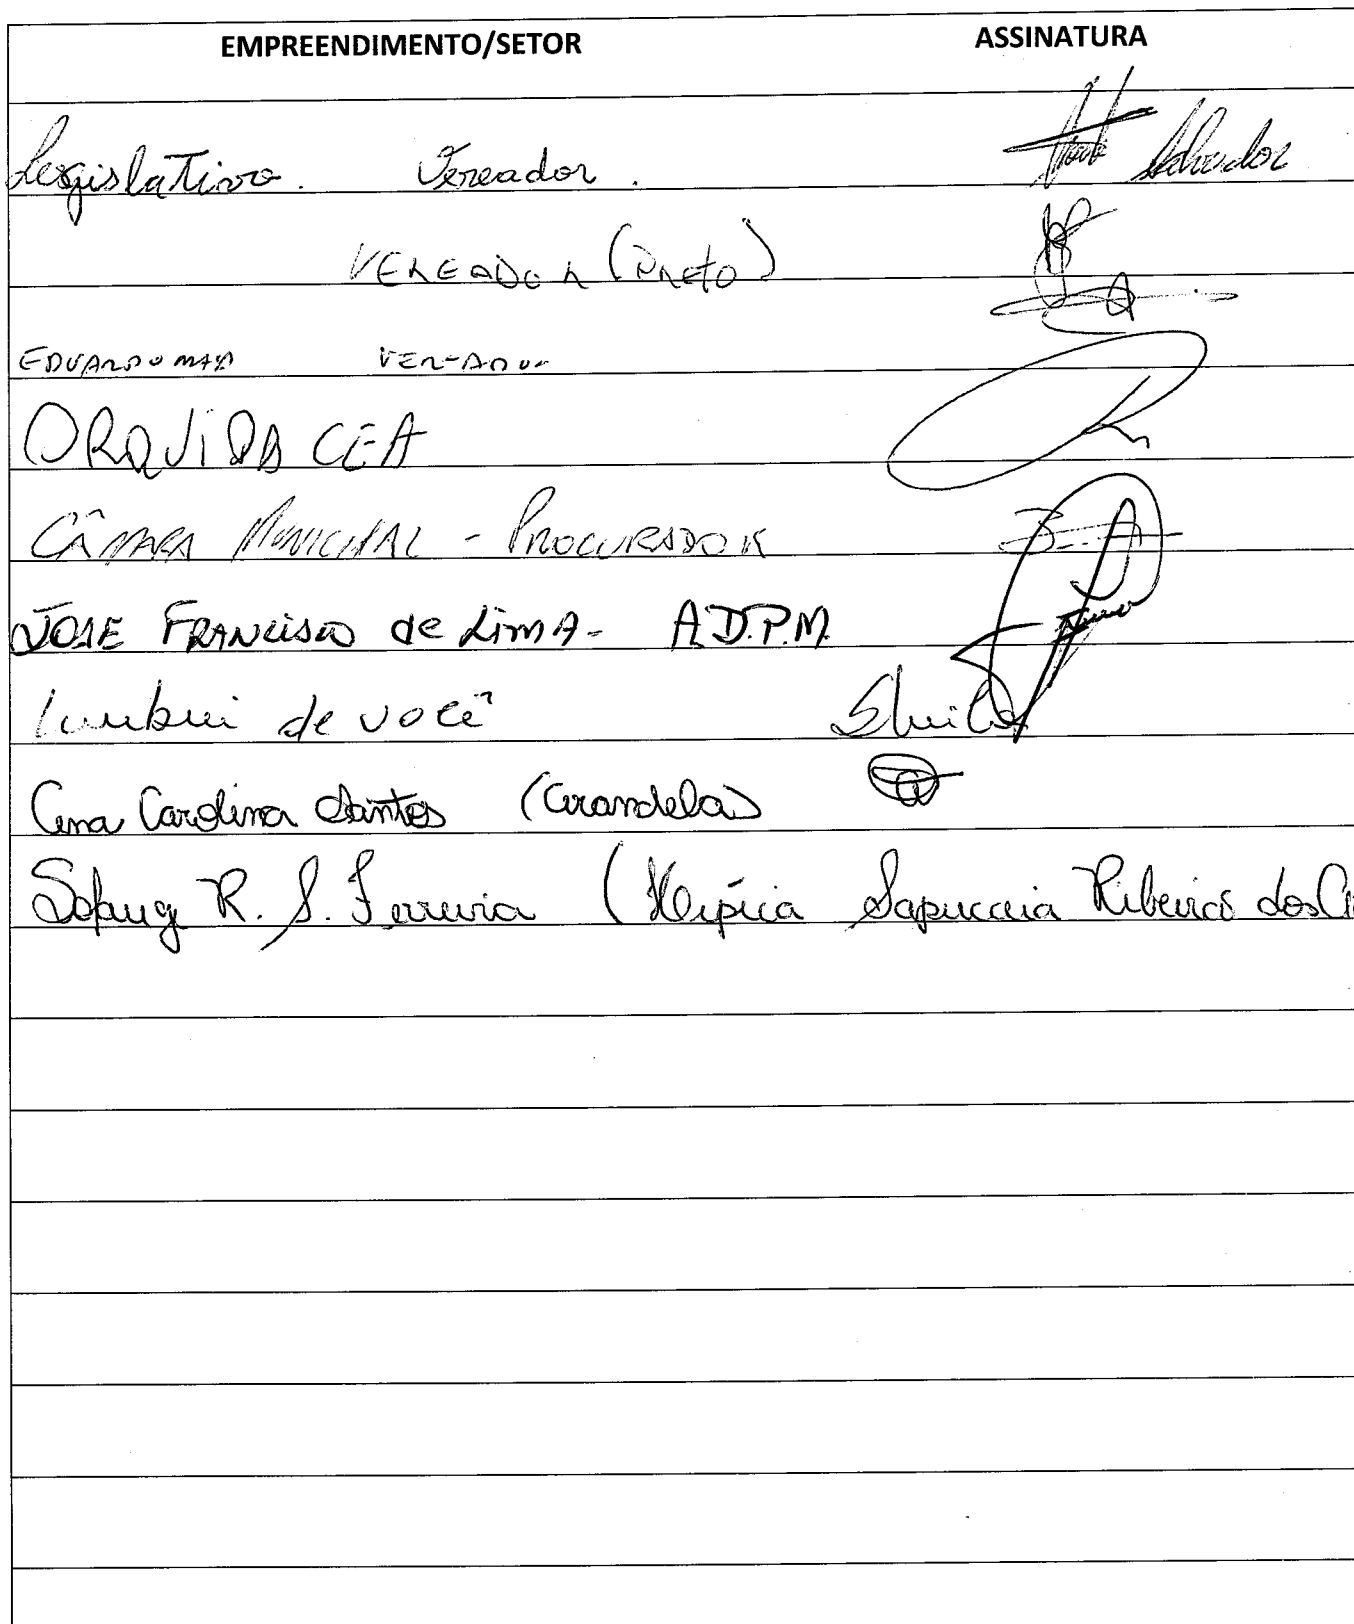 EMPREENDIMENTO/SETOR ASSINATURA
Legislativo. Vereador. Salvador
VEREADOR (PRETO)
EDUARDO VEREADOR
ORQUIDACEA
CÂMARA MUNICIPAL - PROCURADOR
JOSE FRANCISCO de Lima - A.D.P.M.
de você Sheila
Ana Carolina Santos (Cirandela)
R. S. Ferreira (Hípica Sapucaia Ribeiros dos